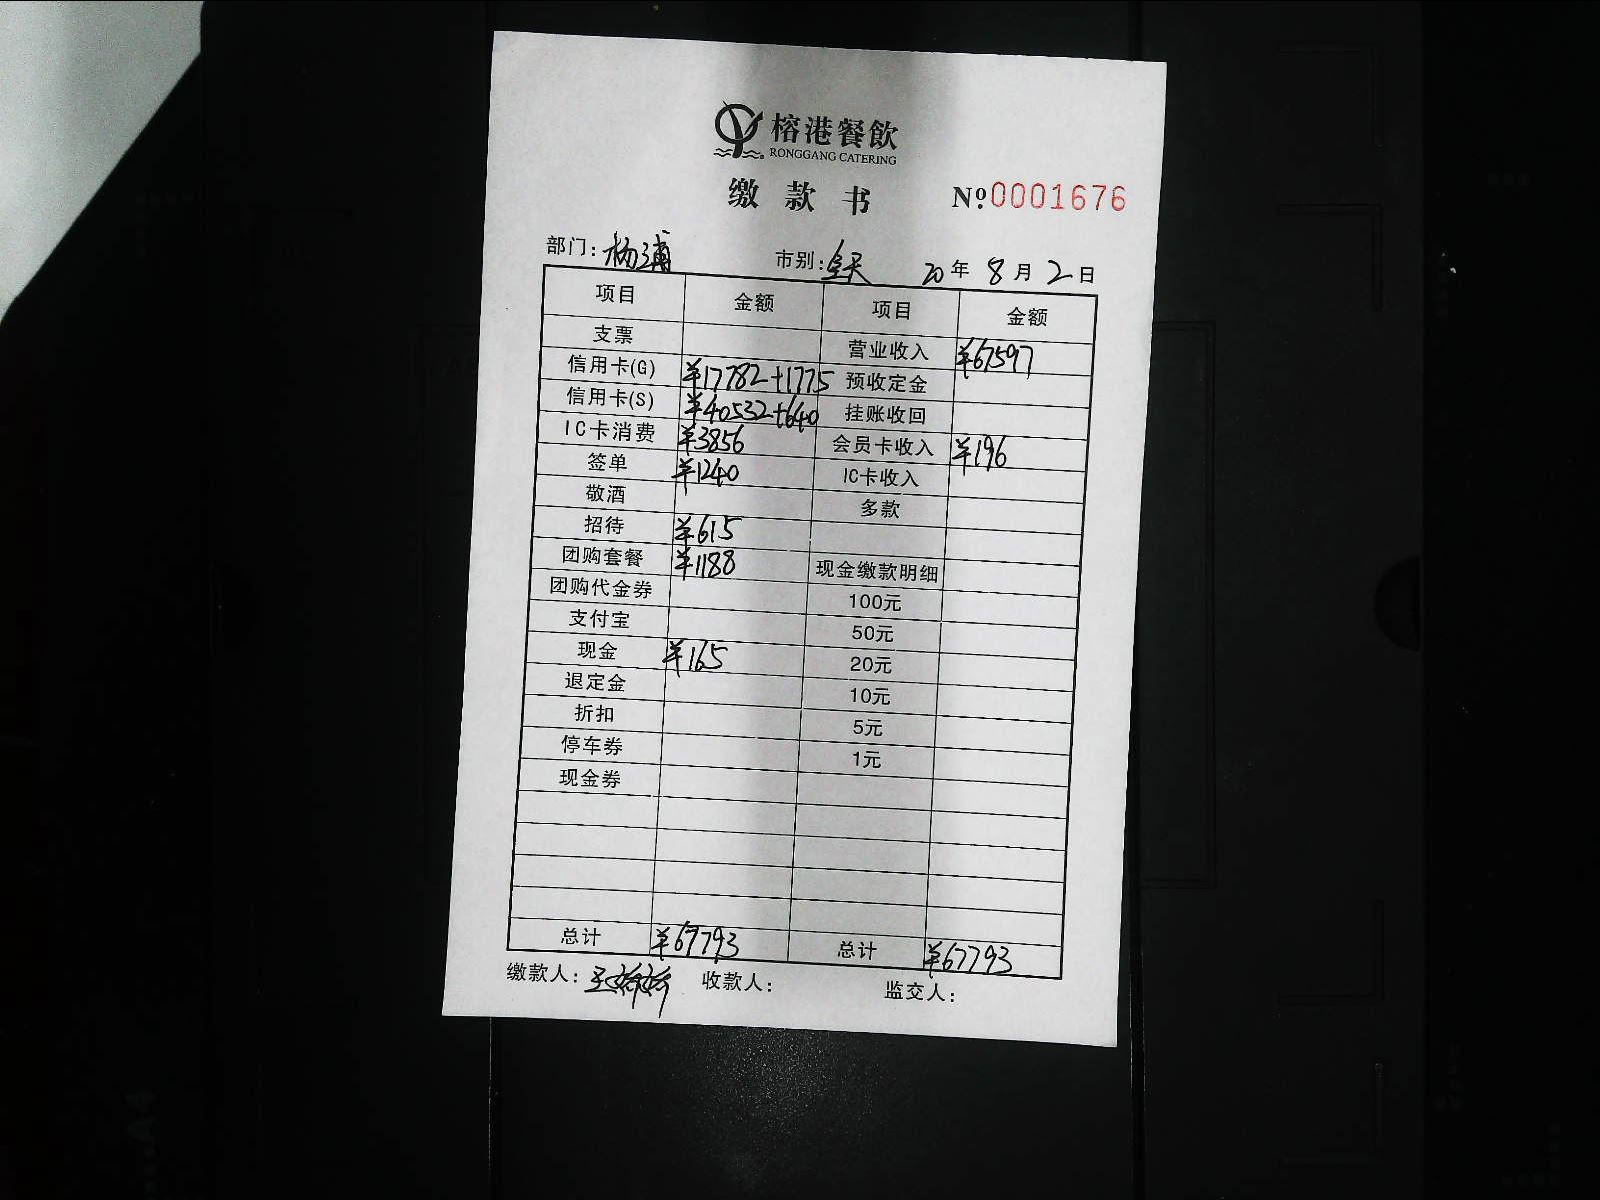 榕港餐飲
RONGGANG CATERING
缴款书 №0001676
部门: 杨浦 市别: 全天 20年8月2日
项目 金额 项目 金额
支票 营业收入 ¥67597
信用卡(G) ¥17782+1775 预收定金
信用卡(S) ¥40532+640 挂账收回
IC卡消费 ¥3856 会员卡收入 ¥196
签单 ¥1240 IC卡收入
敬酒 多款
招待 ¥615
团购套餐 ¥1188 现金缴款明细
团购代金券 100元
支付宝 50元
现金 ¥165 20元
退定金 10元
折扣 5元
停车券 1元
现金券
总计 ¥67793 总计 ¥67793
缴款人: 王娇娇 收款人: 监交人: